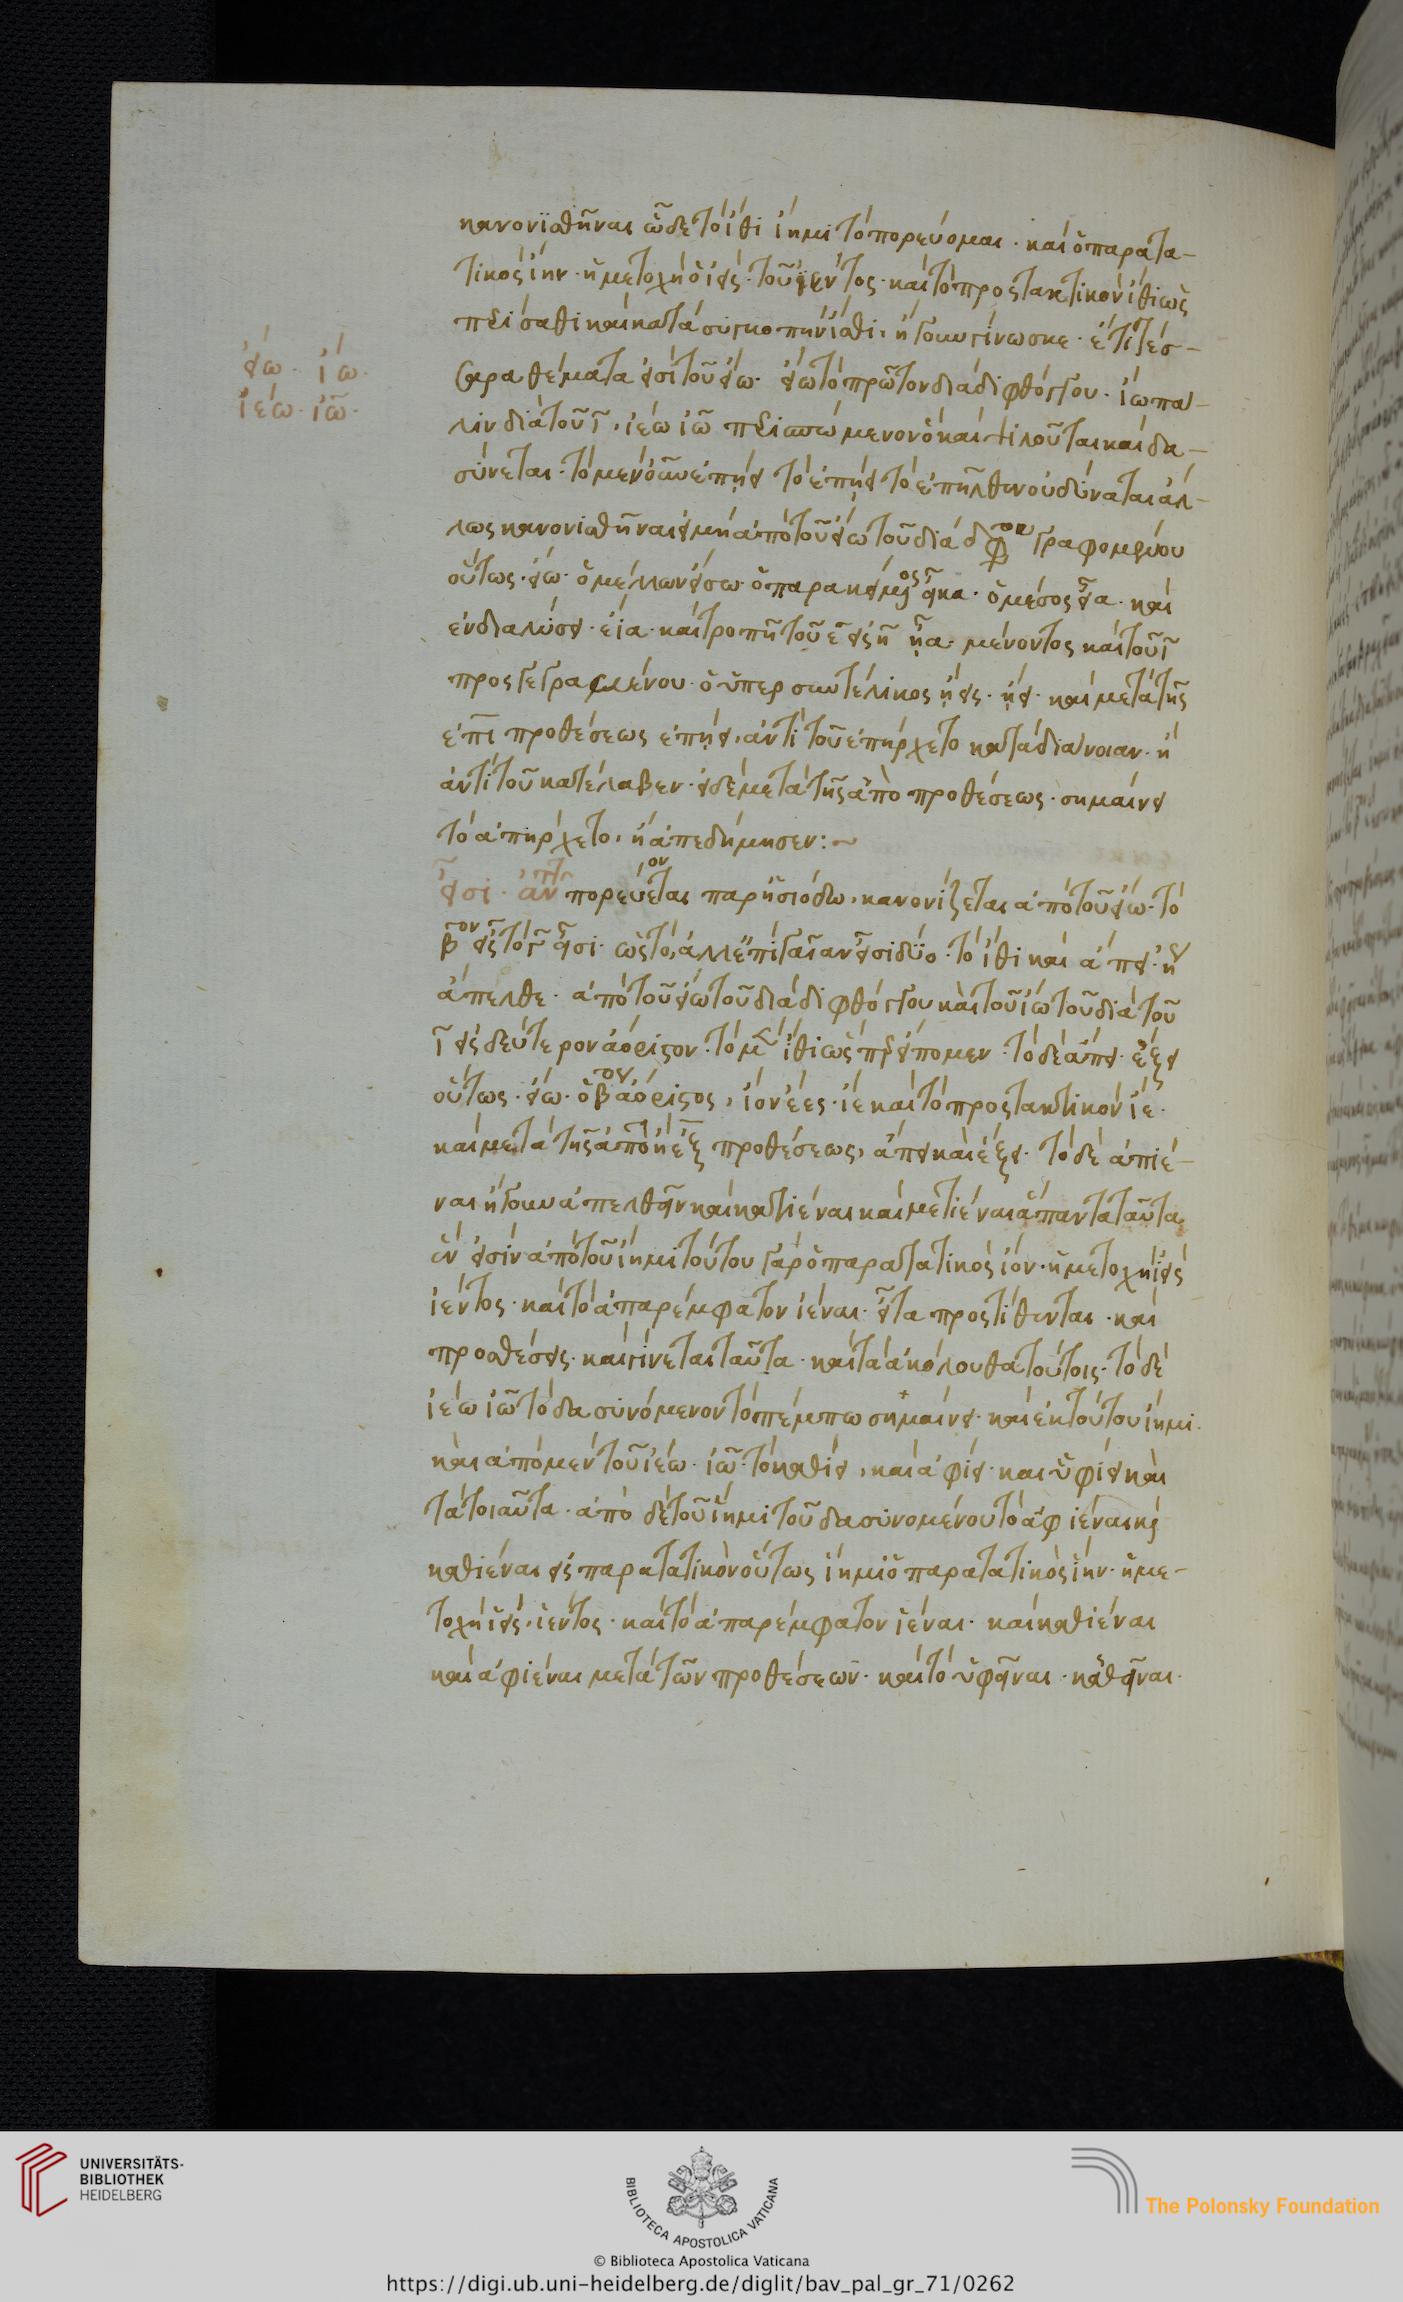 κανονισθῆναι ὧδε τὸ ἴθι ἵημι τὸ πορεύομαι · καὶ ὁ παρατα-
τικὸς ἵην · ἡ μετοχὴ ὁ ἱείς · τοῦ ἱέντος · καὶ τὸ προστακτικὸν ἴθι ὡς
σαθι καὶ κατὰ συγκοπὴν ἴσθι, ἤγουν γίνωσκε · ἔτι τέσ-
εἴω · ἴω ·
ἱέω · ἱῶ ·
σαρα θέματα εἰσὶ τοῦ εἴω · εἴω τὸ πρῶτον διὰ διφθόγγου · ἴω πά-
λιν διὰ τοῦ ῑ, ἱέω ἱῶ περισπώμενον ὃ καὶ ψιλοῦται καὶ δα-
σύνεται · τὸ μὲν οὖν ἐπῄει τὸ ἐπῆλθεν οὐ δύναται ἄλ-
λως κανονισθῆναι εἰ μὴ ἀπὸ τοῦ εἴω τοῦ διὰ γραφομένου
οὕτως · εἴω · ὁ μέλλων εἴσω · ὁ παρακείμενος εἶκα · ὁ μέσος εἶα · καὶ
ἐν διαλύσει · ἔϊα · καὶ τροπῇ τοῦ ε εἰς η ἦα · μένοντος καὶ τοῦ ῑ
προσγεγραμμένου · ὁ ὑπερσυντέλικος ᾔεις · ᾔει · καὶ μετὰ τῆς
ἐπι προθέσεως ἐπῄει, ἀντὶ τοῦ ἐπήρχετο κατὰ διάνοιαν · ἢ
ἀντὶ τοῦ κατέλαβεν · εἰ δὲ μετὰ τῆς ἀπὸ προθέσεως · σημαίνει
τὸ ἀπήρχετο, ἢ ἀπεδήμησεν : ~
εἶσι · ἀντὶ τοῦ πορεύεται παρ' ἡσιόδῳ, κανονίζεται ἀπὸ τοῦ εἴω · τὸ
β̄ον εἶς τὸ γ̄ εἶσι · ὡς τό, ἀλλ' ἐπὶ γαῖαν εἶσι δύο · τὸ ἴθι καὶ ἄπει · ἢ
ἄπελθε · ἀπὸ τοῦ εἴω τοῦ διὰ διφθόγγου καὶ τοῦ ἴω τοῦ διὰ τοῦ
ῑ εἰς δεύτερον ἀόριστον · τὸ μὲν ἴθι ὡς προείπομεν · τὸ δὲ ἄπει · ἔξει
οὕτως · εἴω · ὁ β̄ος ἀόριστος, ἴον ἴες · ἴε καὶ τὸ προστακτικὸν ἴε ·
καὶ μετὰ τῆς ἀπὸ ἢ ἐξ προθέσεως, ἄπει καὶ ἔξει · τὸ δὲ ἀπιέ-
ναι ἤγουν ἀπελθεῖν καὶ κατιέναι καὶ μετιέναι ἅπαντα ταῦτα
εἰσὶν ἀπὸ τοῦ ἵημι τούτου γὰρ ὁ παρατατικὸς ἴον · ἡ μετοχὴ ἱείς
ἱέντος · καὶ τὸ ἀπαρέμφατον ἰέναι · εἶτα προστίθενται · καὶ
προθέσεις · καὶ γίνεται ταῦτα · καὶ τὰ ἀκόλουθα τούτοις · τὸ δὲ
ἱέω ἱῶ τὸ δασυνόμενον τὸ πέμπω σημαίνει · καὶ ἐκ τούτου ἵημι ·
καὶ ἀπὸ μὲν τοῦ ἱέω · ἱῶ · τὸ καθίει, καὶ ἀφίει · καὶ ὑφίει καὶ
τὰ τοιαῦτα · ἀπὸ δὲ τοῦ ἵημι τοῦ δασυνομένου τὸ ἀφιέναι καὶ
καθιέναι εἰς παρατατικὸν οὕτως ἵημι ὁ παρατατικὸς ἵην · ἡ με-
τοχὴ ἱείς, ἱέντος · καὶ τὸ ἀπαρέμφατον ἱέναι · καὶ καθιέναι
καὶ ἀφιέναι μετὰ τῶν προθέσεων · καὶ τὸ ὑφεῖναι · καθεῖναι ·
UNIVERSITÄTS-
BIBLIOTHEK
HEIDELBERG
BIBLIOTECA APOSTOLICA VATICANA
© Biblioteca Apostolica Vaticana
The Polonsky Foundation
https://digi.ub.uni-heidelberg.de/diglit/bav_pal_gr_71/0262